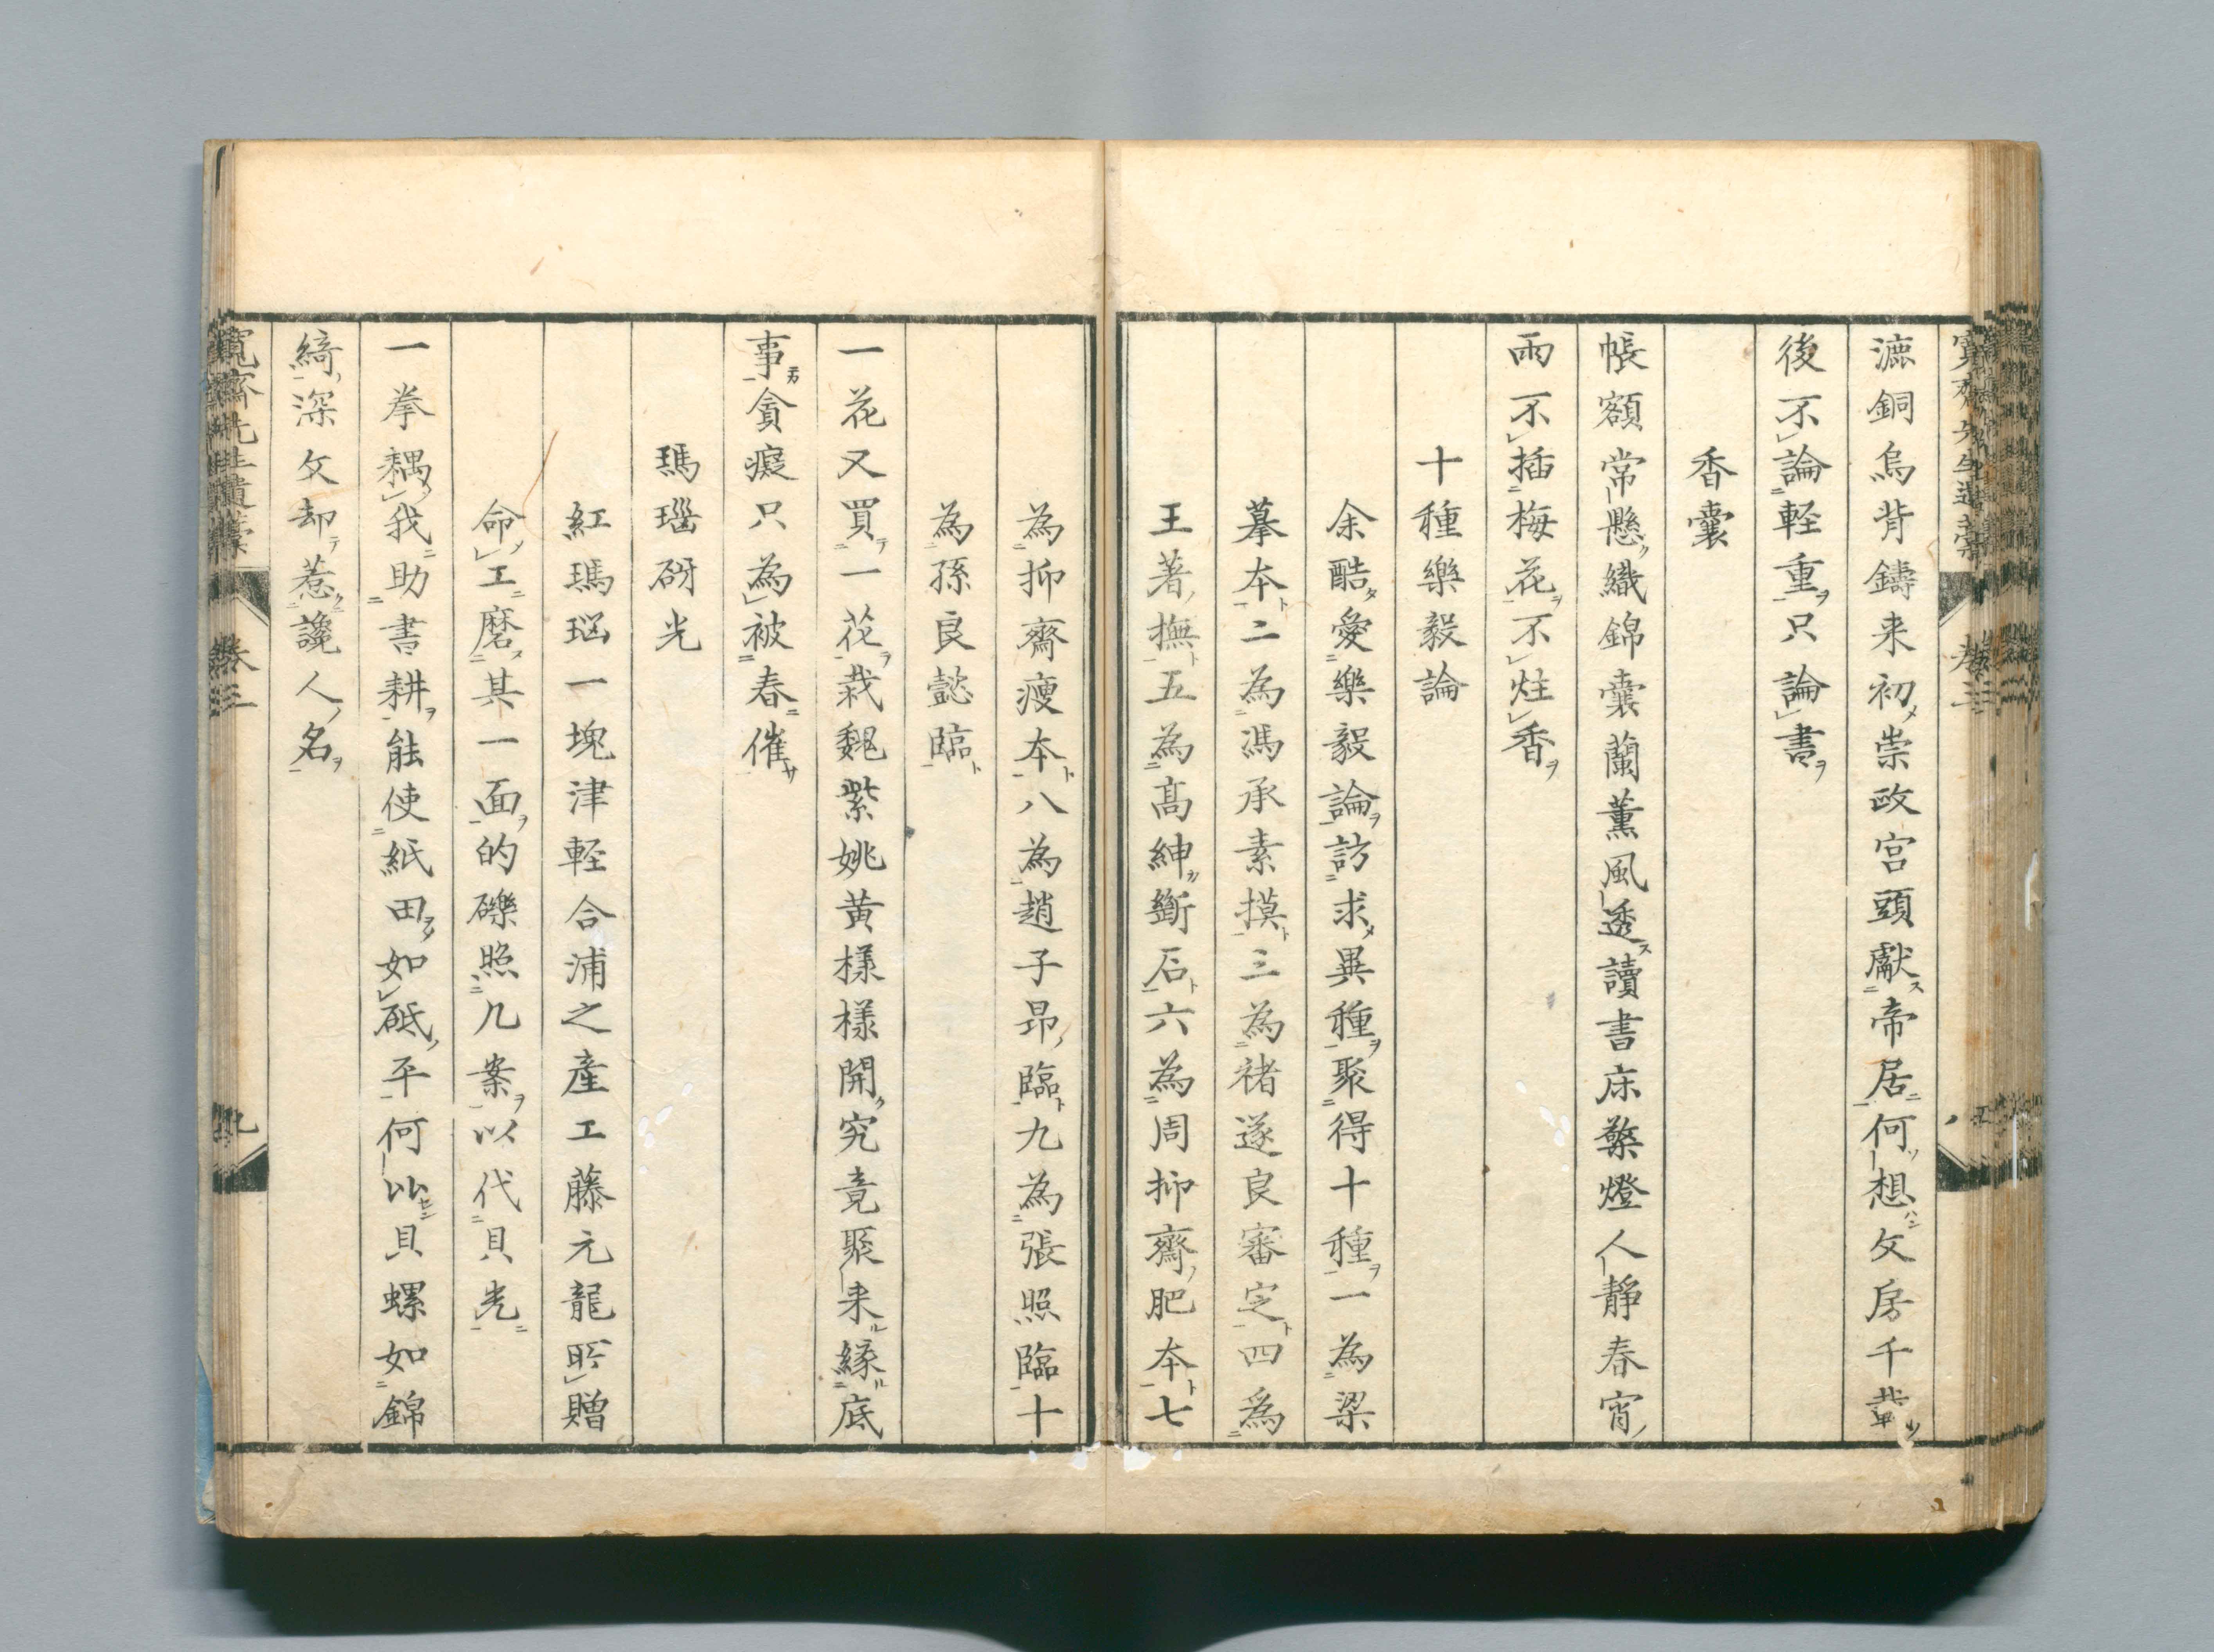 漉銅烏背鑄来初崇政宮頭獻帝居何想文房千載
後不論軽重只論書
香囊
帳額常懸織錦囊蘭薫風透讀書床檠燈人静春宵
雨不插梅花不炷香
十種樂毅論
余酷愛樂毅論訪求異種聚得十種一為梁
摹本二為馮承素摸三為褚遂良審定四為
王著撫五為髙紳斷石六為周抑齋肥本七
為抑齋痩本八為趙子昂臨九為張照臨十
為孫良懿臨
一花又買一花栽魏紫姚黄様様開究竟聚来縁底
事貪癡只為被春催
瑪瑙砑光
紅瑪瑙一塊津軽合浦之產工藤元龍所贈
命工磨其一面的礫照几案以代貝光
一拳耦我助書耕能使紙田如砥平何以貝螺如錦
綺深文却惹讒人名
寛齋先生遺藁 巻三 九